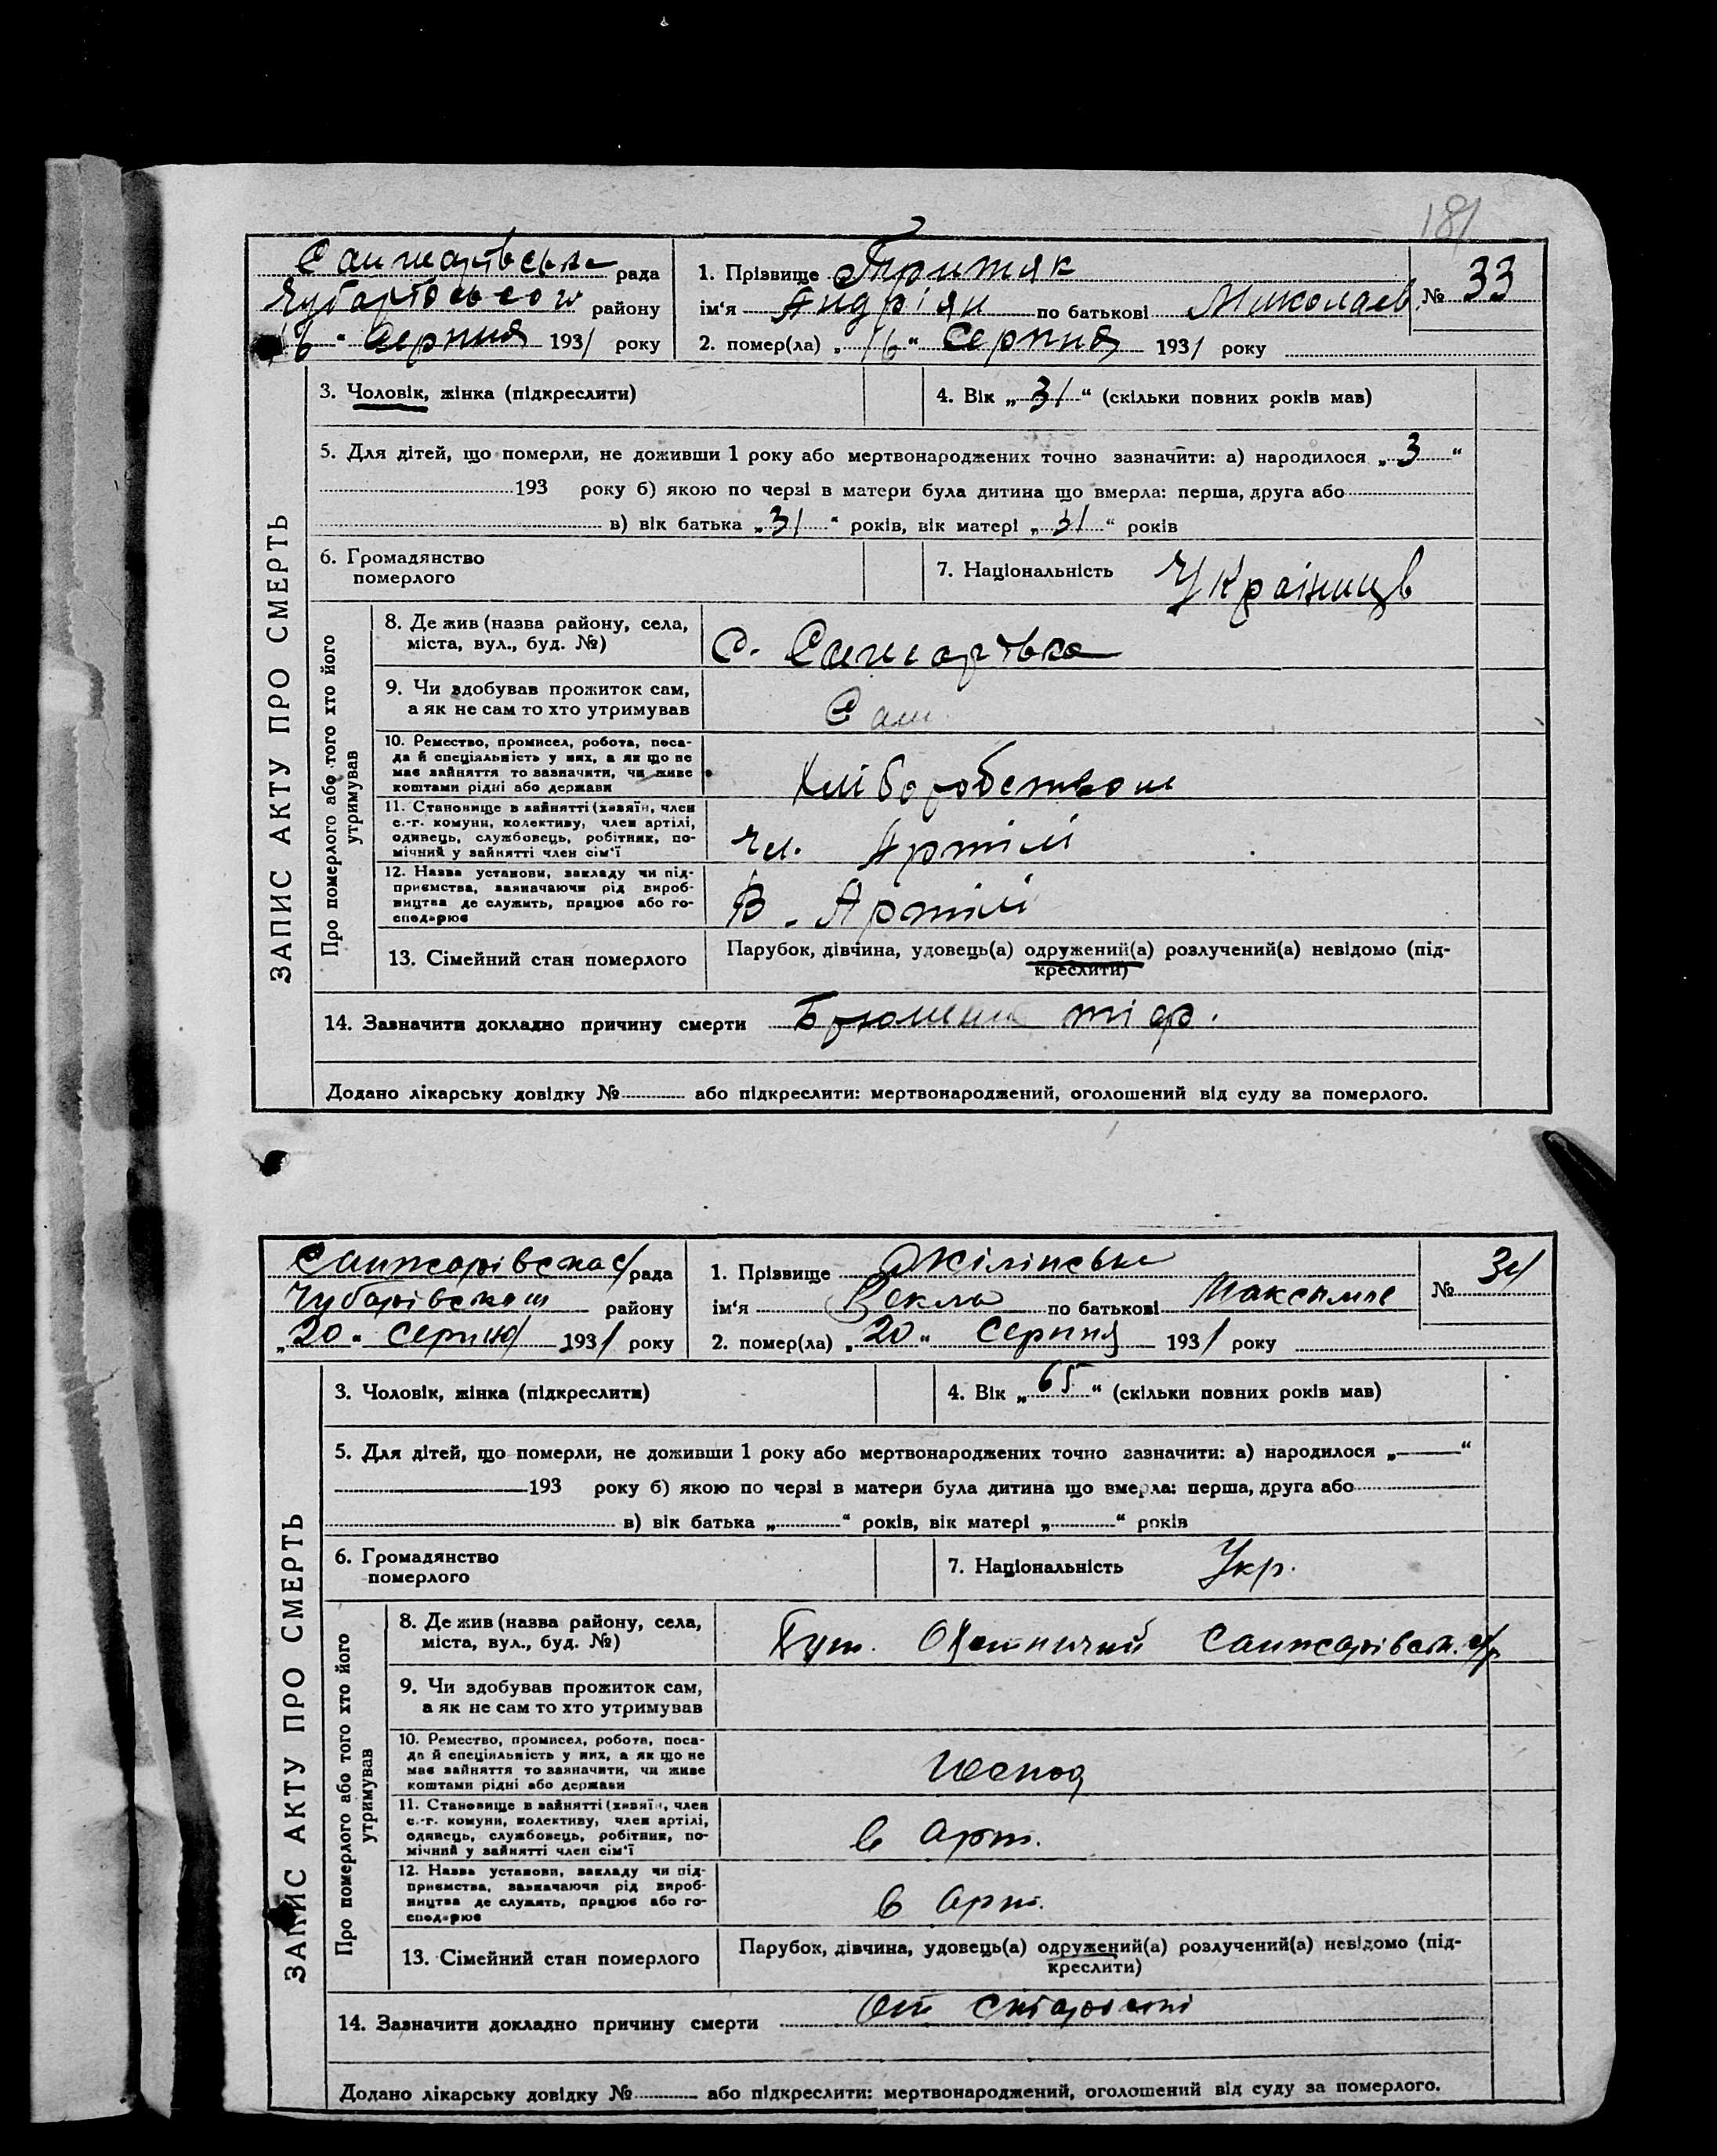 181
Санжарівська рада
Чубарівського району
"16" Серпня 1931 року
1. Прізвище Притяк
ім‘я Андріян по батькові Миколаєв. № 33
2. помер(ла) „16“ Серпня 1931 року
ЗАПИС АКТУ ПРО СМЕРТЬ
3. Чоловік, жінка (підкреслити)
4. Вік „31“ (скільки повних років мав)
5. Для дітей, що померли, не доживши 1 року або мертвонароджених точно зазначити: а) народилося „3“
193 року б) якою по черзі в матери була дитина що вмерла: перша, друга або
в) вік батька „31“ років, вік матері „31“ років
6. Громадянство
померлого
7. Національність Українць
Про померлого або того хто його
утримував
8. Де жив (назва району, села,
міста, вул., буд. №)
с. Санжарівка
9. Чи здобував прожиток сам,
а як не сам то хто утримував
Сам
10. Ремество, промисел, робота, поса-
да й спеціяльність у них, а як що не
має зайняття то зазначити, чи живе
коштами рідні або держави
Хліборобством
11. Становище в зайнятті (хазяїн, член
с.-г. комуни, колективу, член артілі,
одинець, службовець, робітник, по-
мічний у зайнятті член сім‘ї
чл. Артілі
12. Назва установи, закладу чи під-
приємства, зазначаючи рід вироб-
ництва де служить, працює або го-
сподарює
В. Артілі
13. Сімейний стан померлого
Парубок, дівчина, удовець(а) одружений(а) розлучений(а) невідомо (під-
креслити)
14. Зазначити докладно причину смерти Брюшний тіф.
Додано лікарську довідку № або підкреслити: мертвонароджений, оголошений від суду за померлого.
Санжарівська с/рада
Чубарівського району
„20“ серпня 1931 року
1. Прізвище Жілінська
ім‘я Векла по батькові Максимів № 34
2. помер(ла) „20“ Серпня 1931 року
ЗАПИС АКТУ ПРО СМЕРТЬ
3. Чоловік, жінка (підкреслити)
4. Вік „65“ (скільки повних років мав)
5. Для дітей, що померли, не доживши 1 року або мертвонароджених точно зазначити: а) народилося „—“
193 року б) якою по черзі в матери була дитина що вмерла: перша, друга або
в) вік батька „“ років, вік матері „“ років
6. Громадянство
померлого
7. Національність Укр.
Про померлого або того хто його
утримував
8. Де жив (назва району, села,
міста, вул., буд. №)
Хут. Охотничий Санжарівськ. с/р
9. Чи здобував прожиток сам,
а як не сам то хто утримував
10. Ремество, промисел, робота, поса-
да й спеціяльність у них, а як що не
має зайняття то зазначити, чи живе
коштами рідні або держави
Господ
11. Становище в зайнятті (хазяїн, член
с.-г. комуни, колективу, член артілі,
одинець, службовець, робітник, по-
мічний у зайнятті член сім‘ї
в арт.
12. Назва установи, закладу чи під-
приємства, зазначаючи рід вироб-
ництва де служить, працює або го-
сподарює
в арт.
13. Сімейний стан померлого
Парубок, дівчина, удовець(а) одружений(а) розлучений(а) невідомо (під-
креслити)
14. Зазначити докладно причину смерти От старости
Додано лікарську довідку № або підкреслити: мертвонароджений, оголошений від суду за померлого.